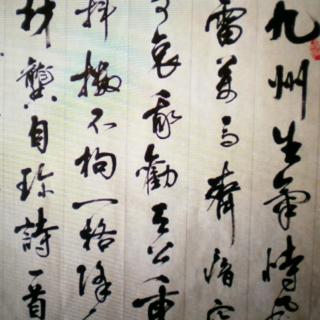 九州生氣恃風
雷萬馬齊瘖究
可哀我勸天公重
抖擻不拘一格降
龔自珍詩一首